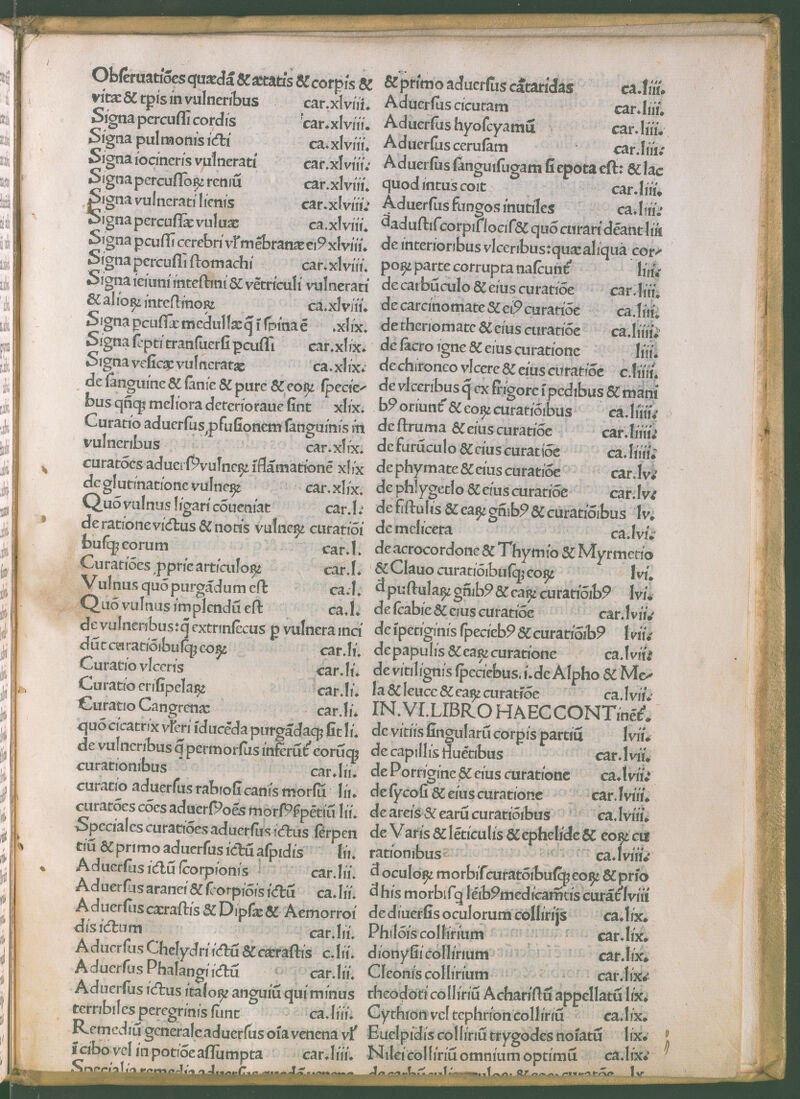 Obseruatiões quædã & ætatis & corpis &
vitæ & tpis in vulneribus car.xlviii.
Signa percussi cordis car.xlviii.
Signa pulmonis icti ca.xlviii.
Signa iocineris vulnerati car.xlviii.
Signa percussoꝝ reniũ car.xlviii.
Signa vulnerati lienis car.xlviii.
Signa percussæ vuluæ ca.xlviii.
Signa pcussi cerebri vl̕ mẽbranæ eiꝰ xlviii.
Signa percussi stomachi car.xlviii.
Signa ieiuni intestini & vẽtriculi vulnerati
& alioꝝ intestinoꝝ ca.xlviii.
Signa pcussæ medullæ q̃ ĩ spina ẽ .xlix.
Signa septi transuersi pcussi car.xlix.
Signa vesicæ vulneratæ ca.xlix.
de sanguine & sanie & pure & eoꝝ specie-
bus qñqꝫ meliora deterioraue sint xlix.
Curatio aduersus ꝓfusionem sanguinis in
vulneribus car.xlix.
curatões aduersꝰ vulneꝝ ĩflãmationẽ xlix
de glutinatione vulneꝝ car.xlix.
Quõ vulnus ligari cõueniat car.l.
de ratione victus & notis vulneꝝ curatiõi
busqꝫ eorum car.l.
Curatiões ꝓprie articuloꝝ car.l.
Vulnus quõ purgãdum est ca.l.
Quõ vulnus implendũ est ca.l.
de vulneribus: q̃ extrinsecus p vulnera inci
dũt curatiõibusqꝫ eoꝝ car.li.
Curatio vlceris car.li.
Curatio erisipelaꝝ car.li.
Curatio Cangrenæ car.li.
quõ cicatrix vlceri ĩducẽda purgãdaqꝫ sit li.
de vulneribus q̃ permorsus inferũt̃ eorũqꝫ
curationibus car.lii.
curatio aduersus rabiosi canis morsũ lii.
curatões cões aduersꝰ oẽs morsꝰ spẽtiũ lii.
Speciales curatiões aduersus ictus serpen
tiũ & primo aduersus ictũ aspidis lii.
Aduersus ictũ scorpionis car.lii.
Aduersus aranei & scorpiõis ictũ ca.lii.
Aduersus cærastis & Dipsæ & Aemorroi
dis ictum car.lii.
Aduersus Chelydri ictũ & cærastis c.lii.
Aduersus Phalangi ictũ car.lii.
Aduersus ictus italoꝝ anguiũ qui minus
terribiles peregrinis sunt ca.liii.
Remediũ generale aduersus oĩa venena vl̕
ĩ cibo vel in potiõe assumpta car.liii.
Specialia remedia aduersus quædã venena
& primo aduersus cãtaridas ca.liii.
Aduersus cicutam car.liii.
Aduersus hyoscyamũ car.liii.
Aduersus cerusam car.liii.
Aduersus sanguisugam si epota est: & lac
quod intus coit car.liii.
Aduersus fungos inutiles ca.liii.
d̃ adustis corpis locis & quõ curari dẽant liii
de interioribus vlceribus: quæ aliqua cor-
poꝝ parte corrupta nascunt̃ liii.
de carbũculo & eius curatiõe car.liii.
de carcinomate & eiꝰ curatiõe ca.liii.
de theriomate & eius curatiõe ca.liiii.
de sacro igne & eius curatione liii.
de chironeo vlcere & eius curatiõe c.liiii.
de vlceribus q̃ ex frigore ĩ pedibus & mani
bꝰ oriunt̃ & eoꝝ curatiõibus ca.liiii.
de struma & eius curatiõe car.liiii.
de furũculo & eius curatiõe ca.liiii.
de phymate & eius curatiõe car.lv.
de phlygetlo & eius curatiõe car.lv.
de fistulis & eaꝝ gñibꝰ & curatiõibus lv.
de melicera ca.lvi.
de acrocordone & Thymio & Myrmetio
& Clauo curatiõibusqꝫ eoꝝ lvi.
d̃ pustulaꝝ gñibꝰ & eaꝝ curatiõibꝰ lvi.
de scabie & eius curatiõe car.lvii.
de ĩpetiginis speciebꝰ & curatiõibꝰ lvii.
de papulis & eaꝝ curatione ca.lvii.
de vitilignis speciebus.i.de Alpho & Me-
la & leuce & eaꝝ curatiõe ca.lvii.
IN.VI.LIBRO HAEC CONTinẽt̃.
de vitiis singularũ corpis partiũ lvii.
de capillis fluẽtibus car.lvii.
de Porrigine & eius curatione ca.lvii.
de sycosi & eius curatione car.lviii.
de areis & earũ curatiõibus ca.lviii.
de Varis & lẽticulis & ephelide & eoꝝ cu
rationibus ca.lviii.
d̃ oculoꝝ morbis curatõibusqꝫ eoꝝ & prĩo
d̃ his morbis q̃ lẽibꝰ medicamẽtis curãt̃ lviii
de diuersis oculorum collirijs ca.lix.
Philõis collirium car.lix.
dionysii collirium car.lix.
Cleonis collirium car.lix.
theodoti colliriũ Acharistũ appellatũ lix.
Cythion vel tephrion colliriũ ca.lix.
Euelpidis colliriũ trygodes noĩatũ lix.
Nilei colliriũ omnium optimũ ca.lix.